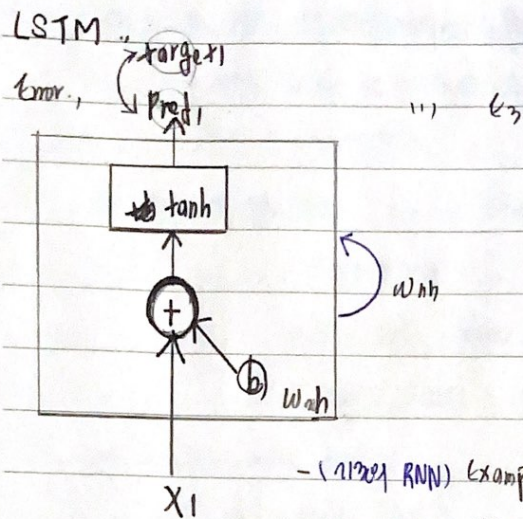 LSTM
target1
Error1
Pred1
tanh
Whh
+
b
Wxh
X1
- (기존의 RNN) Examp